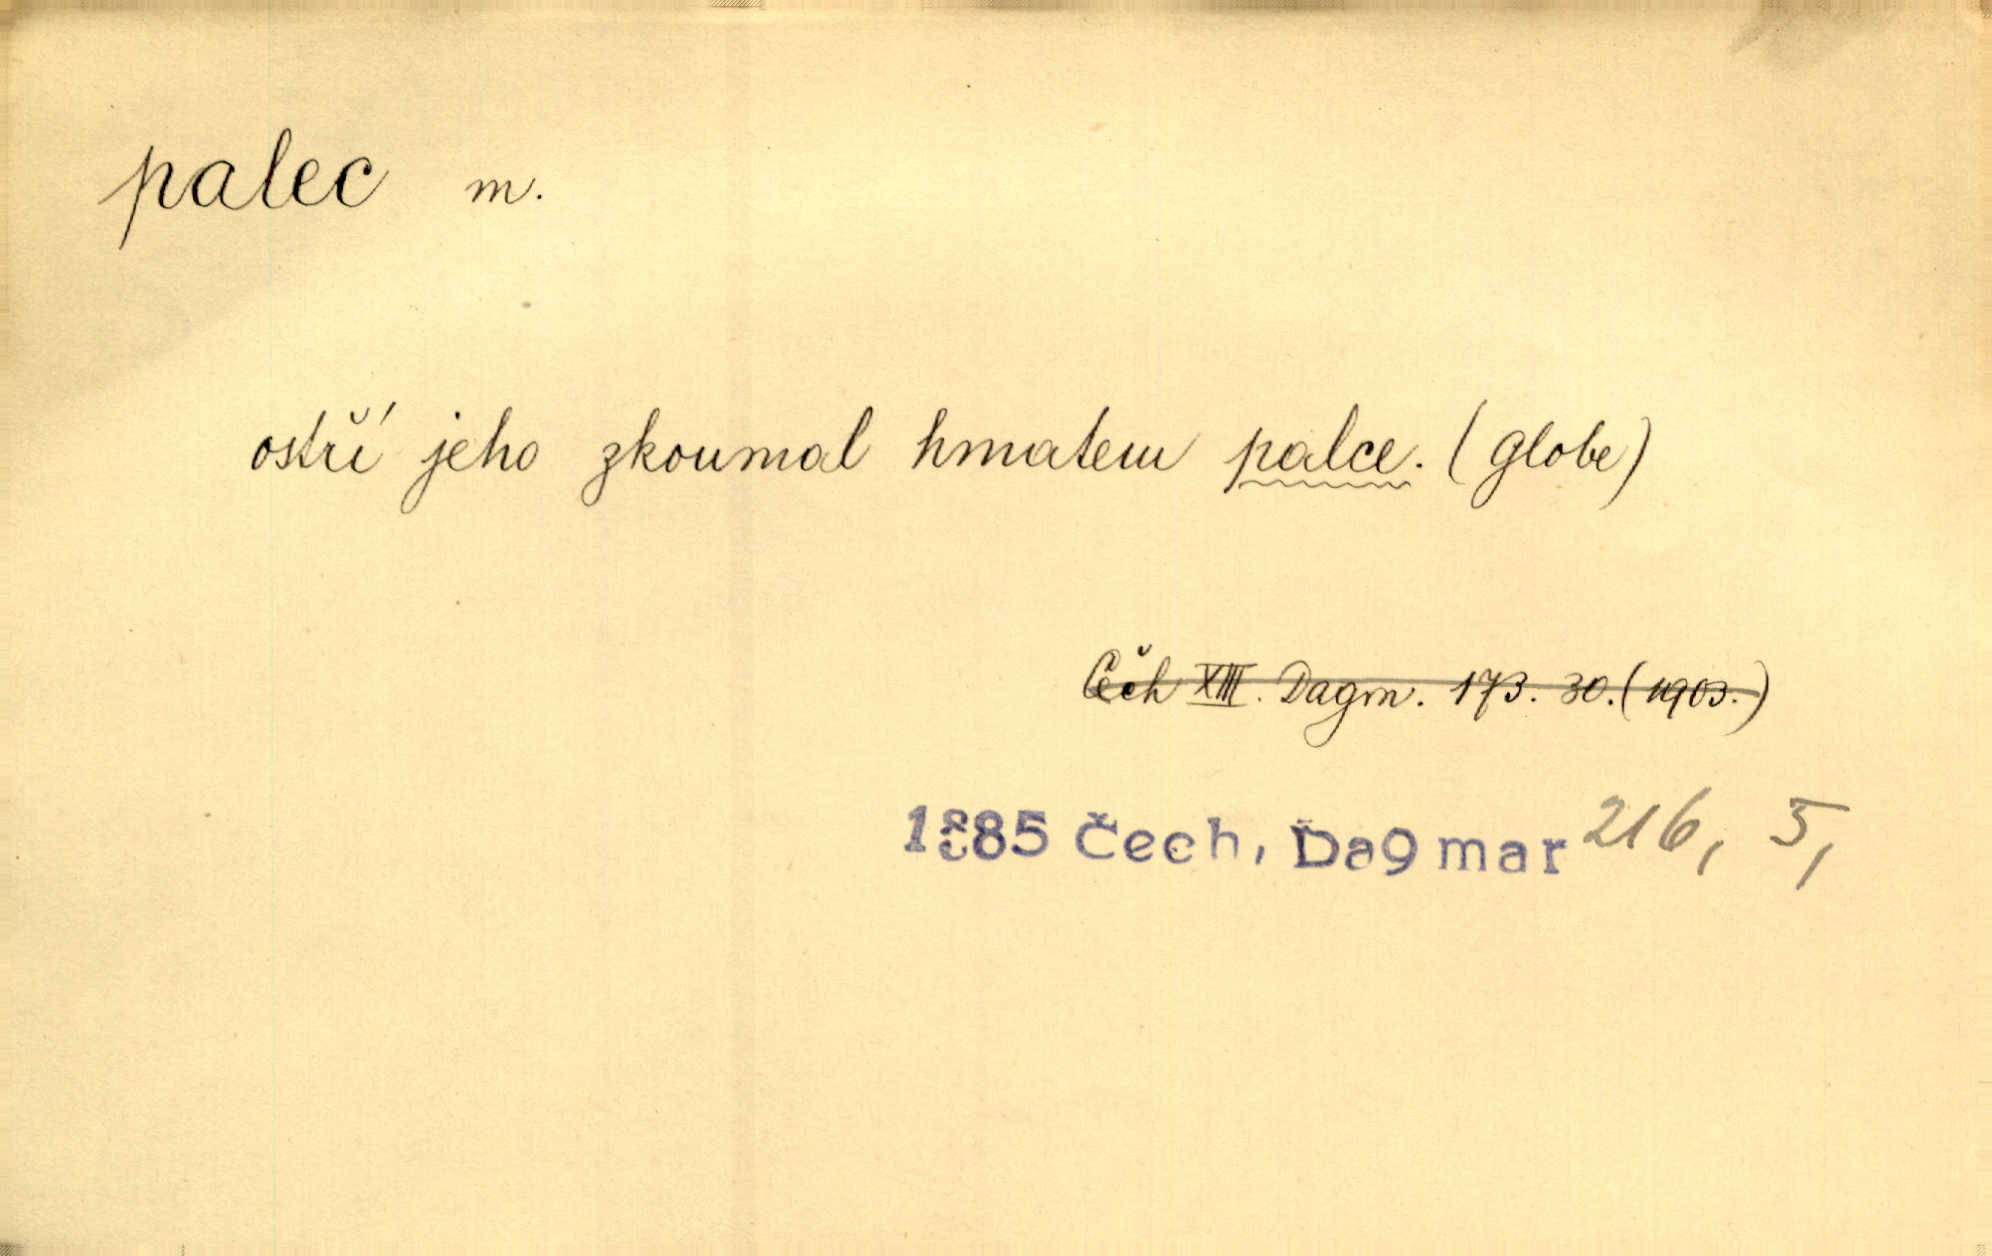 palec m.
ostří jeho zkoumal hmatem palce. (Globe)
Čech XIII. Dagm. 173. 30. (1903.)
1885 Čech, Dagmar 216, 5,